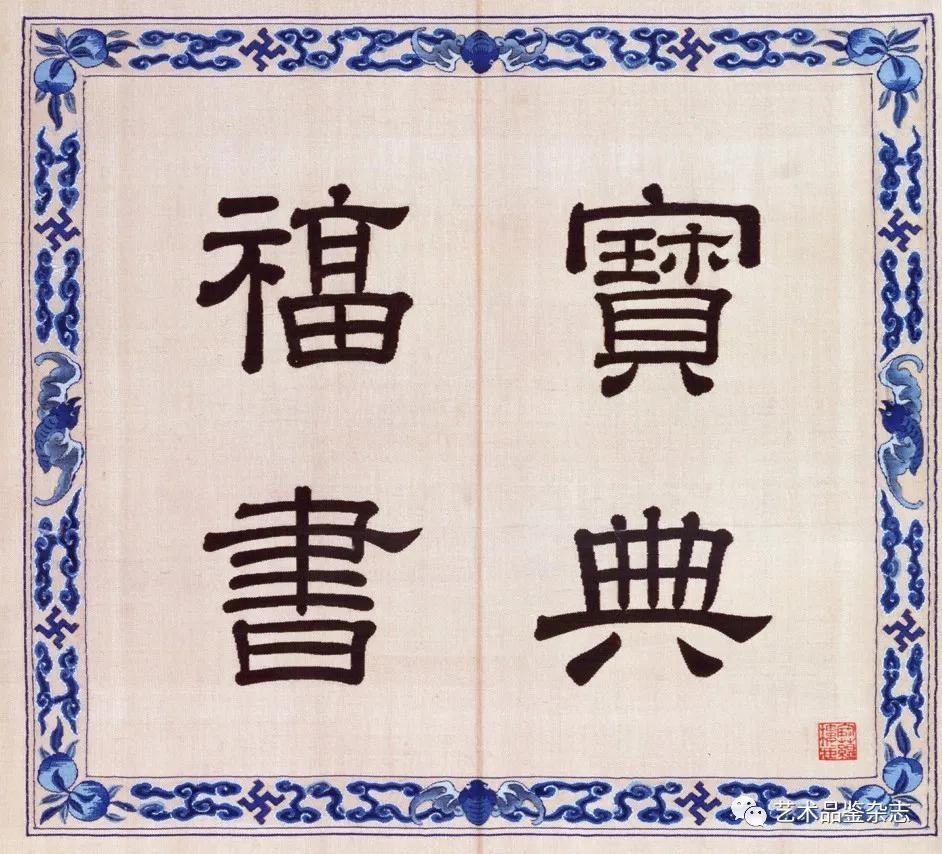 寶典
福書
艺术品鉴杂志